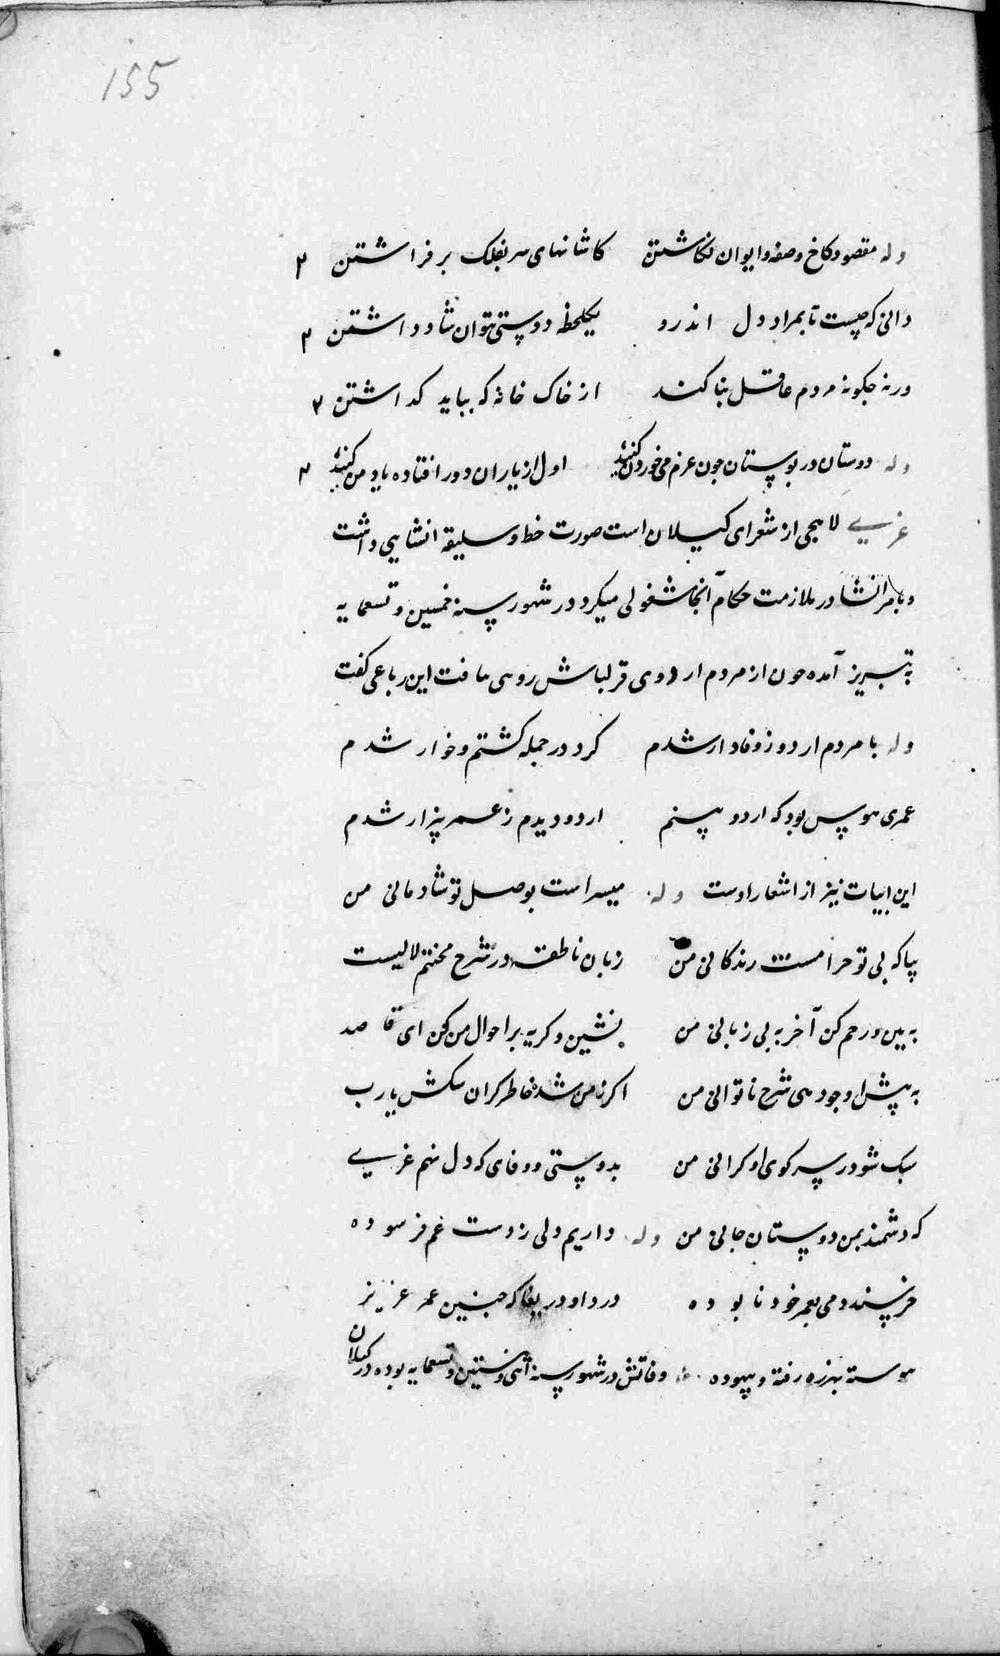 155
وله مقصود کاخ و صفه و ایوان نکاشتن کاشانهای سر بفلک بر فراشتن ۲
دانی که چیست تا بمراد دل اندرو یکلحظه دوستی بتوان شاد داشتن ۲
ورنه چکونه مردم عاقل بنا کند از خاک خانه که بباید کداشتن ۲
وله دوستان در بوستان چون عزم می خوردن کنید اول از یاران دور افتاده یاد من کنید ۲
غریبی لاهجی از شعرای کیلان است صورت خط و سلیقه انشایی داشت
و بامر انشا در ملازمت حکام آنجا مشغولی میکرد در شهور سنه خمسین و تسعمایه
به تبریز آمده چون از مردم اردوی قزلباش روی نیافت این رباعی کفت
وله با مردم اردو ز وفا دار شدم کرد در جمله کشتم و خوار شدم
عمری هوس بود که اردو بینم اردو دیدم ز عمر بیزار شدم
این ابیات نیز از اشعار اوست وله میسر است بوصل تو شادمانی من
بیا که بی تو حرامست زندکانی من زبان ناطقه در شرح محنتم لالیست
به بین و رحم کن آخر به بی زبانی من بنشین و کریه بر احوال من کن ای قاصد
به پیش او چو دهی شرح ناتوانی من اکر ز من شده خاطر کران مکش یا رب
سبک شو در سر کوی او کرانی من بدوستی و وفای که دل نهم غریبی
که دشمند بمن دوستان جانی من وله داریم دلی ز دست غم فرسوده
خرسند دمی بعمر خود نابوده دردا و دریغا که چنین عمر عزیز
پیوسته بهرزه رفته و بیهوده وفاتش در شهور سنه اثنی و ستین و تسعمایه بوده در کیلان